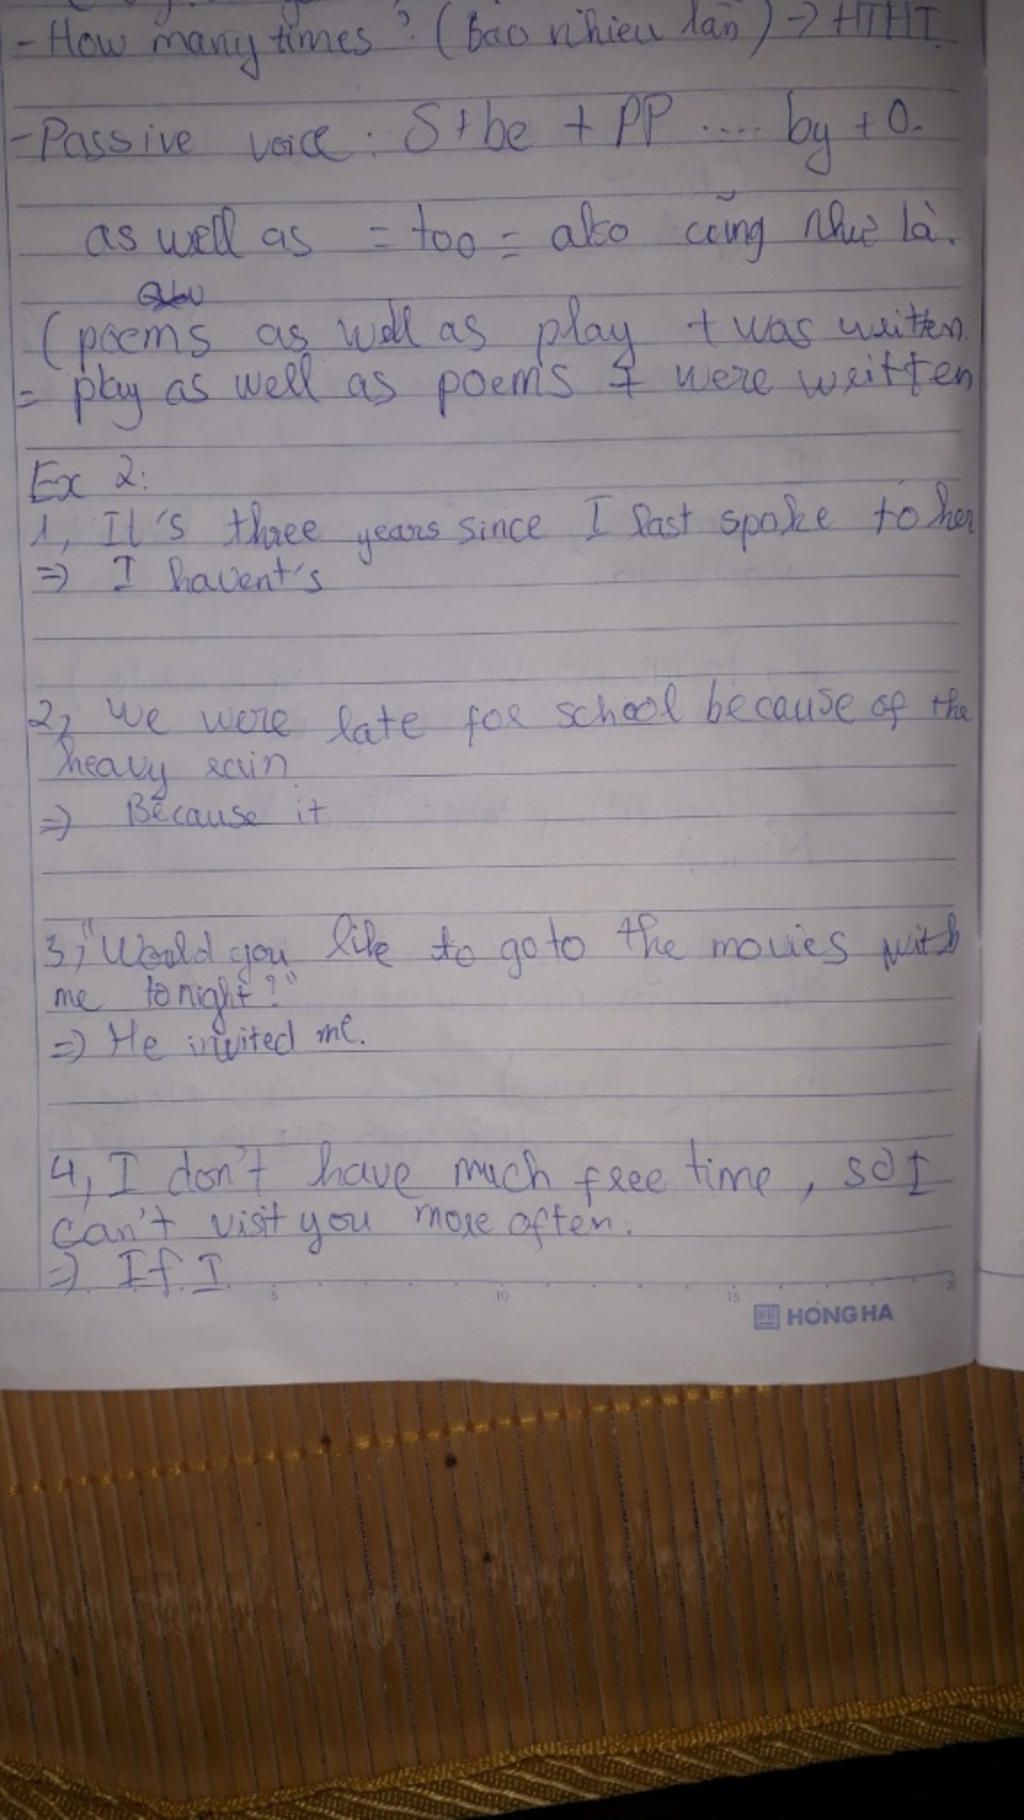 - How many times? (bao nhiêu lần) -> HTHT
- Passive voice: S + be + PP .... by + O.
as well as = too = also cũng như là.
(poems as well as play + was written
= play as well as poems + were written
Ex 2:
1, It's three years since I last spoke to her
=> I havent's
2, We were late for school because of the
heavy rain
=> Because it
3, "Would you like to go to the movies with
me tonight?"
=> He invited me.
4, I don't have much free time, so I
can't visit you more often.
=> If I
5 10 15
HONG HA